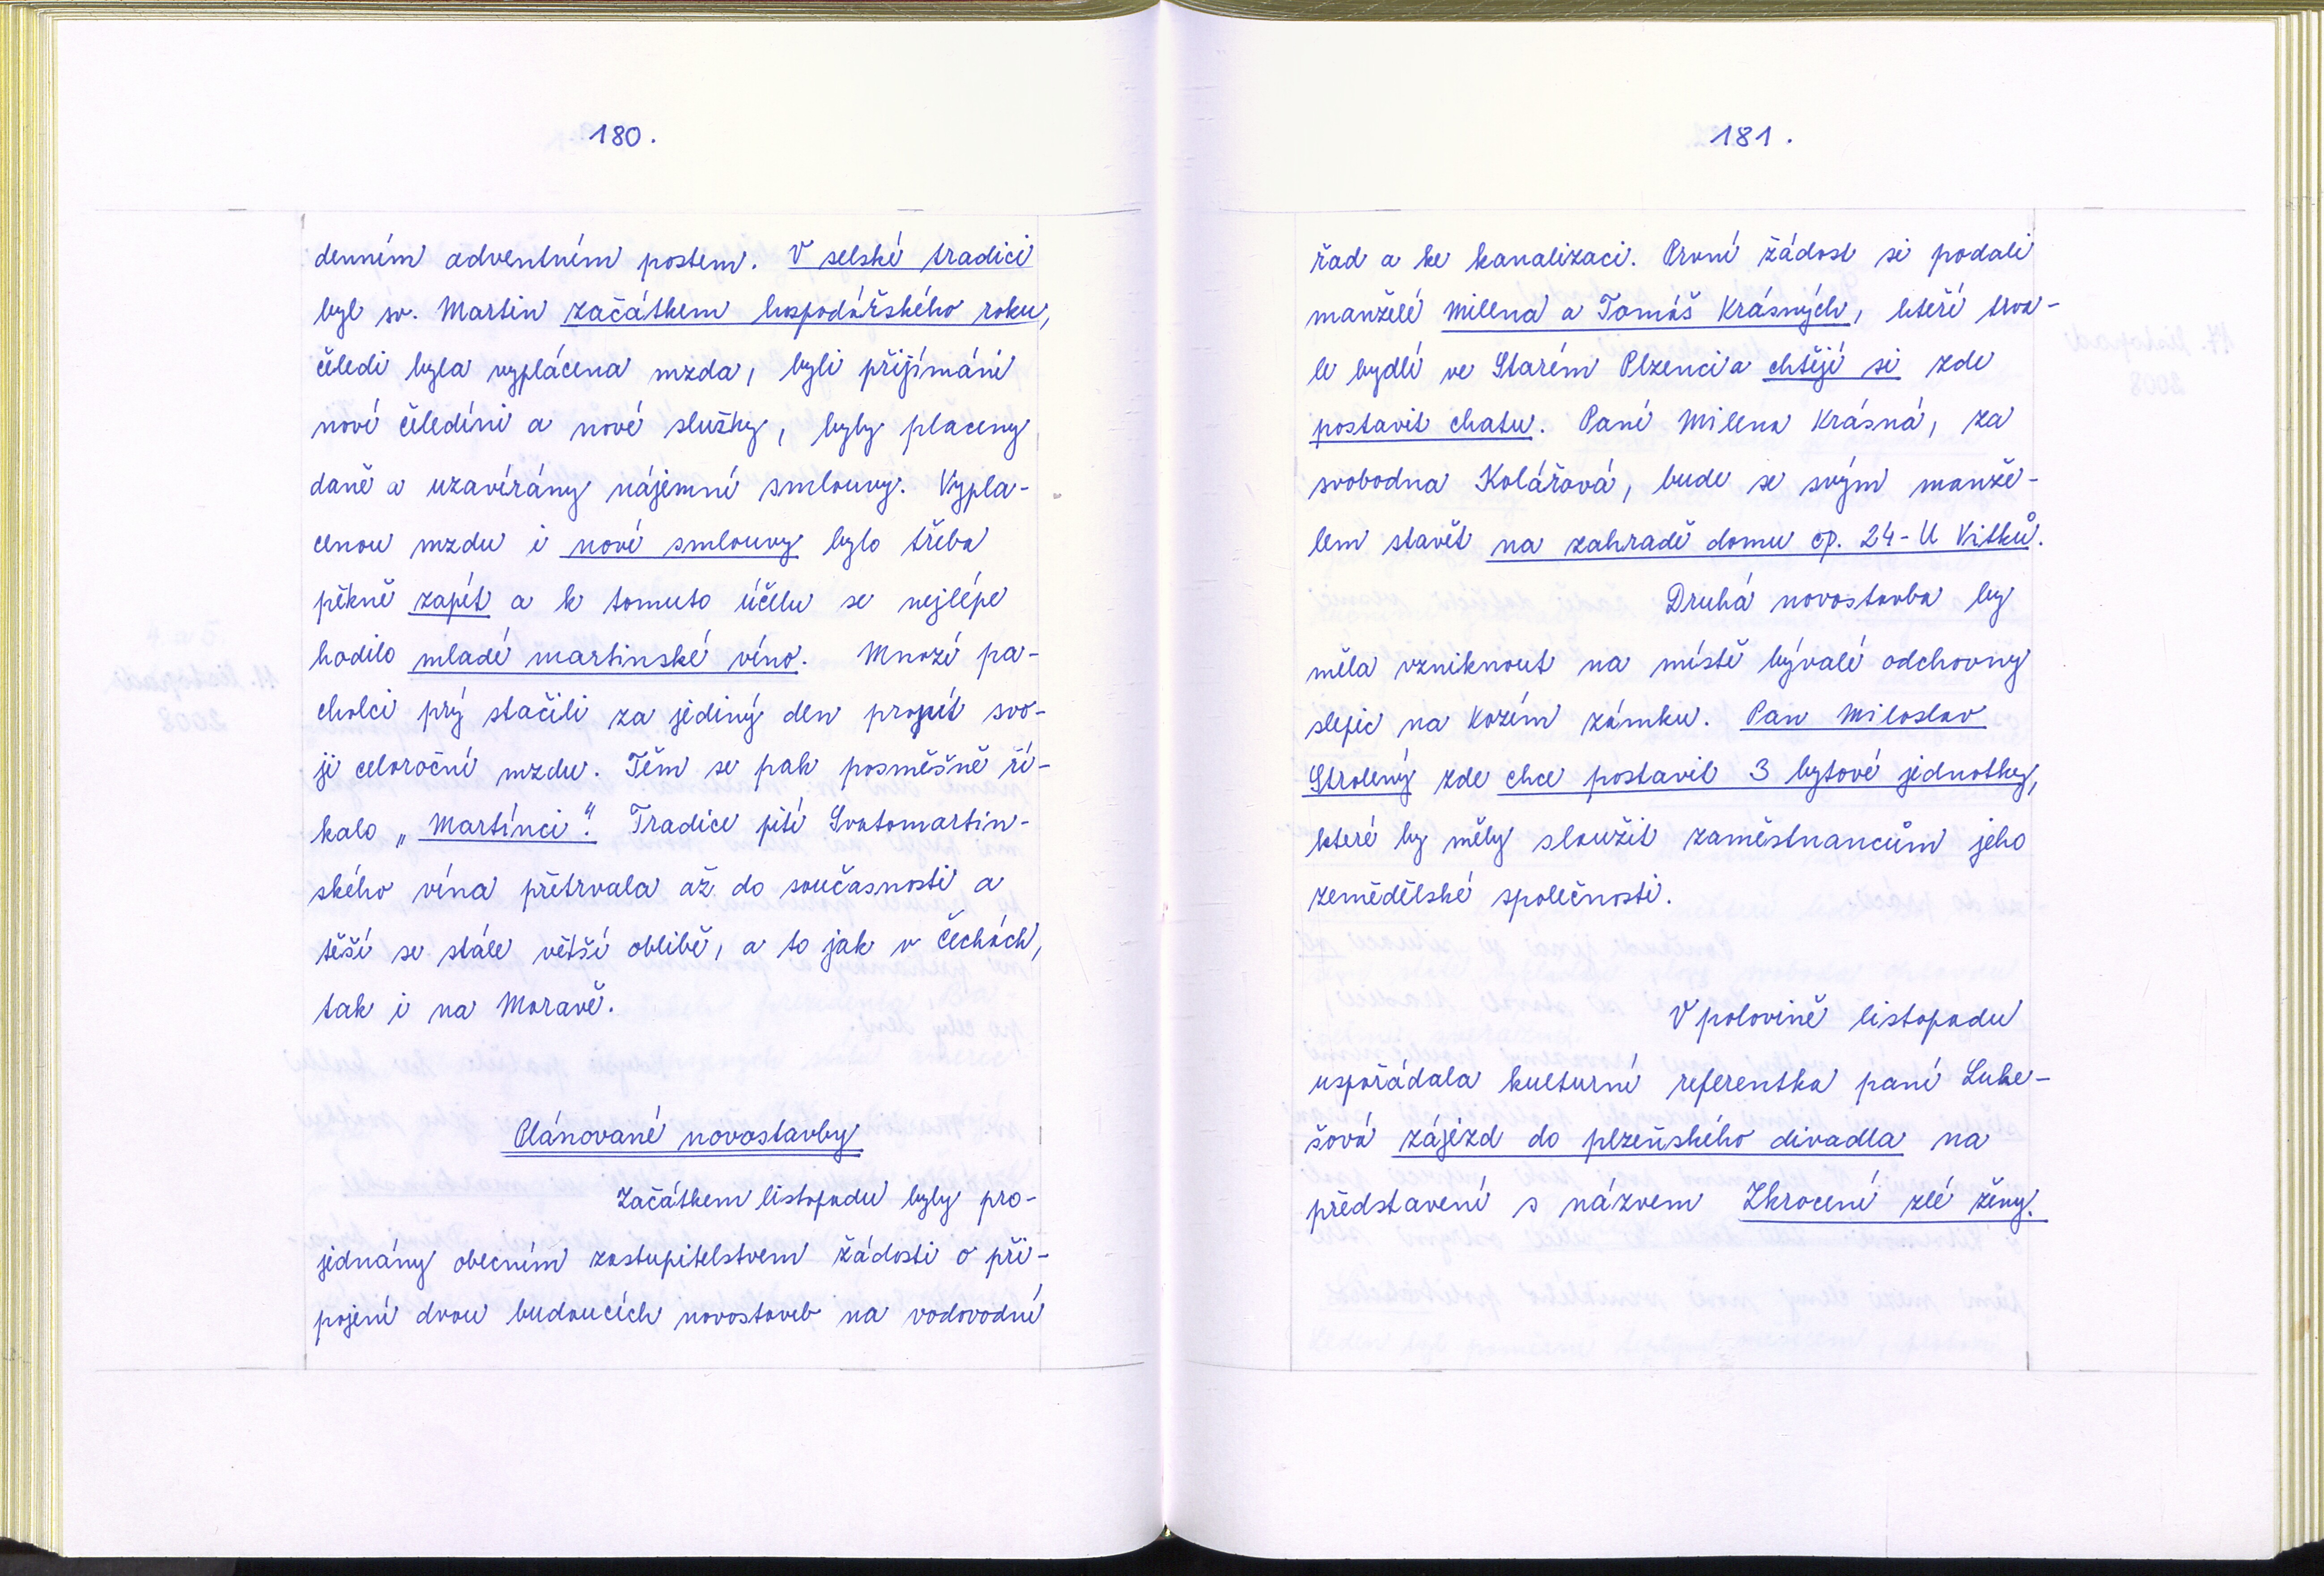 180.
denním adventním postem. V selské tradici
byl sv. Martin začátkem hospodářského roku,
čeledi byla vyplácena mzda, byli přijímáni
noví čeledíni a nové služky, byly placeny
daně a uzavírány nájemní smlouvy. Vypla-
cenou mzdu i nové smlouvy bylo třeba
pěkně zapít a k tomuto účelu se nejlépe
hodilo mladé martinské víno. Mnozí pa-
cholci prý stačili za jediný den propít svo-
ji celoroční mzdu. Těm se pak posměšně ří-
kalo „Martínci". Tradice pití Svatomartin-
ského vína přetrvala až do současnosti a
těší se stále větší oblibě, a to jak v Čechách,
tak i na Moravě.
Plánované novostavby
Začátkem listopadu byly pro-
jednány obecním zastupitelstvem žádosti o při-
pojení dvou budoucích novostaveb na vodovodní
181.
řad a ke kanalizaci. První žádost si podali
manželé Milena a Tomáš Krásných, kteří trva-
le bydlí ve Starém Plzenci a chtějí si zde
postavit chatu. Paní Milena Krásná, za
svobodna Kolářová, bude se svým manže-
lem stavět na zahradě domu čp. 24 - U Vitků.
Druhá novostavba by
měla vzniknout na místě bývalé odchovny
slepic na Kozím zámku. Pan Miloslav
Strolený zde chce postavit 3 bytové jednotky,
které by měly sloužit zaměstnancům jeho
zemědělské společnosti.
V polovině listopadu
uspořádala kulturní referentka paní Luke-
šová zájezd do plzeňského divadla na
představení s názvem Zkrocení zlé ženy.